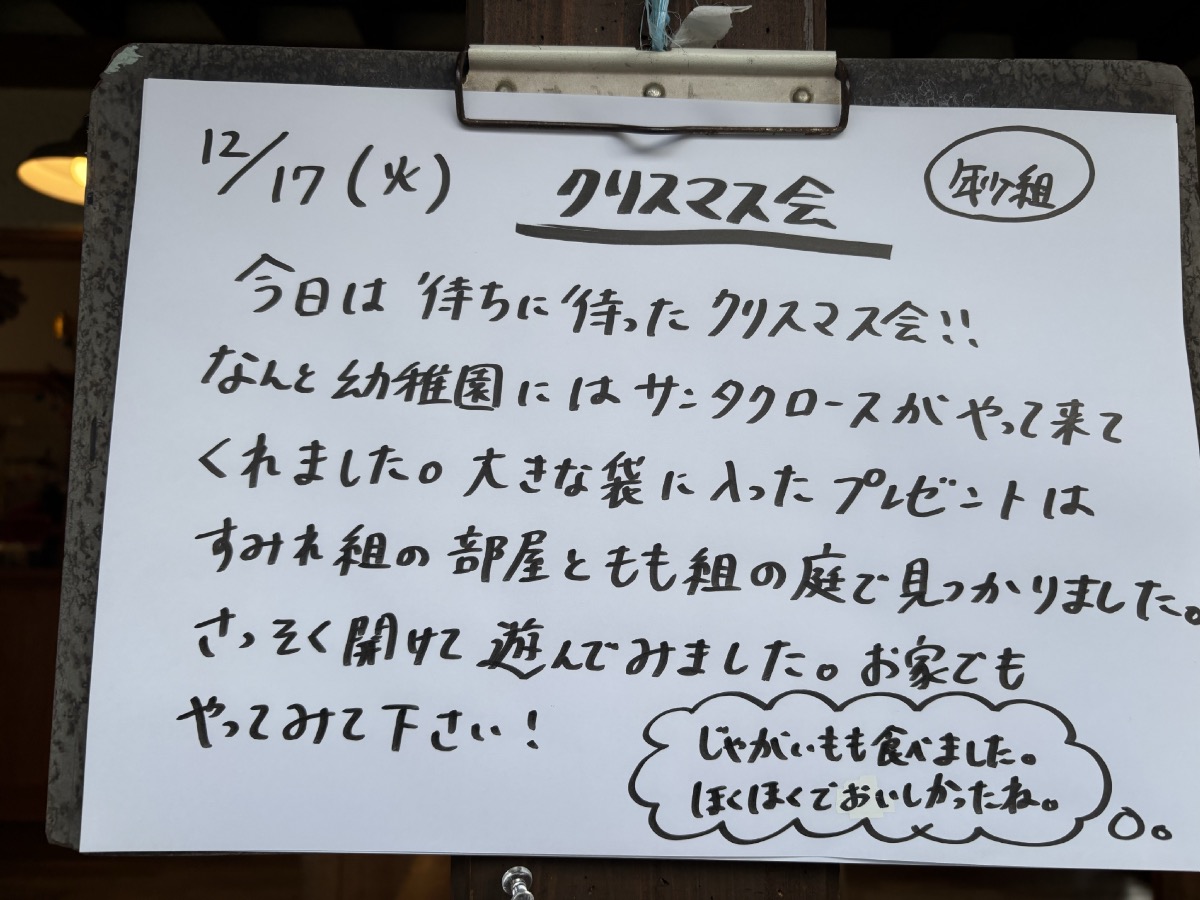 12/17(火) クリスマス会 年少組
今日は待ちに待ったクリスマス会!!
なんと幼稚園にはサンタクロースがやって来て
くれました。大きな袋に入ったプレゼントは
すみれ組の部屋ともも組の庭で見つかりました。
さっそく開けて遊んでみました。お家でも
やってみて下さい!
じゃがいもも食べました。
ほくほくでおいしかったね。